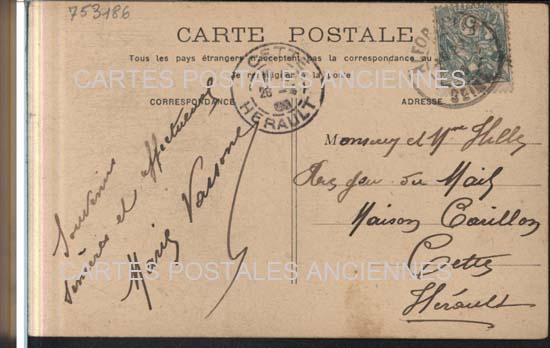 753186
CARTE POSTALE
Tous les pays étrangers n'acceptent pas la correspondance au
se renseigner à la poste
CORRESPONDANCE
ADRESSE
CETTE
26
HÉRAULT
5
Souvenirs
sincères et affectueux
Marie
Monsieur et Mme
du Mail
Maison Carillon
Cette
Hérault
CARTES POSTALES ANCIENNES
CARTES POSTALES ANCIENNES